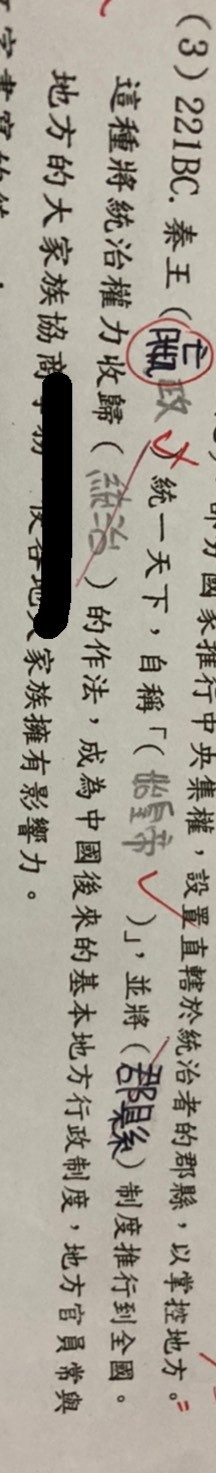 國家推行中央集權，設置直轄於統治者的郡縣，以掌控地方。
(3) 221BC. 秦王（嬴政）統一天下，自稱「（始皇帝）」，並將（郡縣）制度推行到全國。
這種將統治權力收歸（統治）的作法，成為中國後來的基本地方行政制度，地方官員常與
地方的大家族協商 家族擁有影響力。